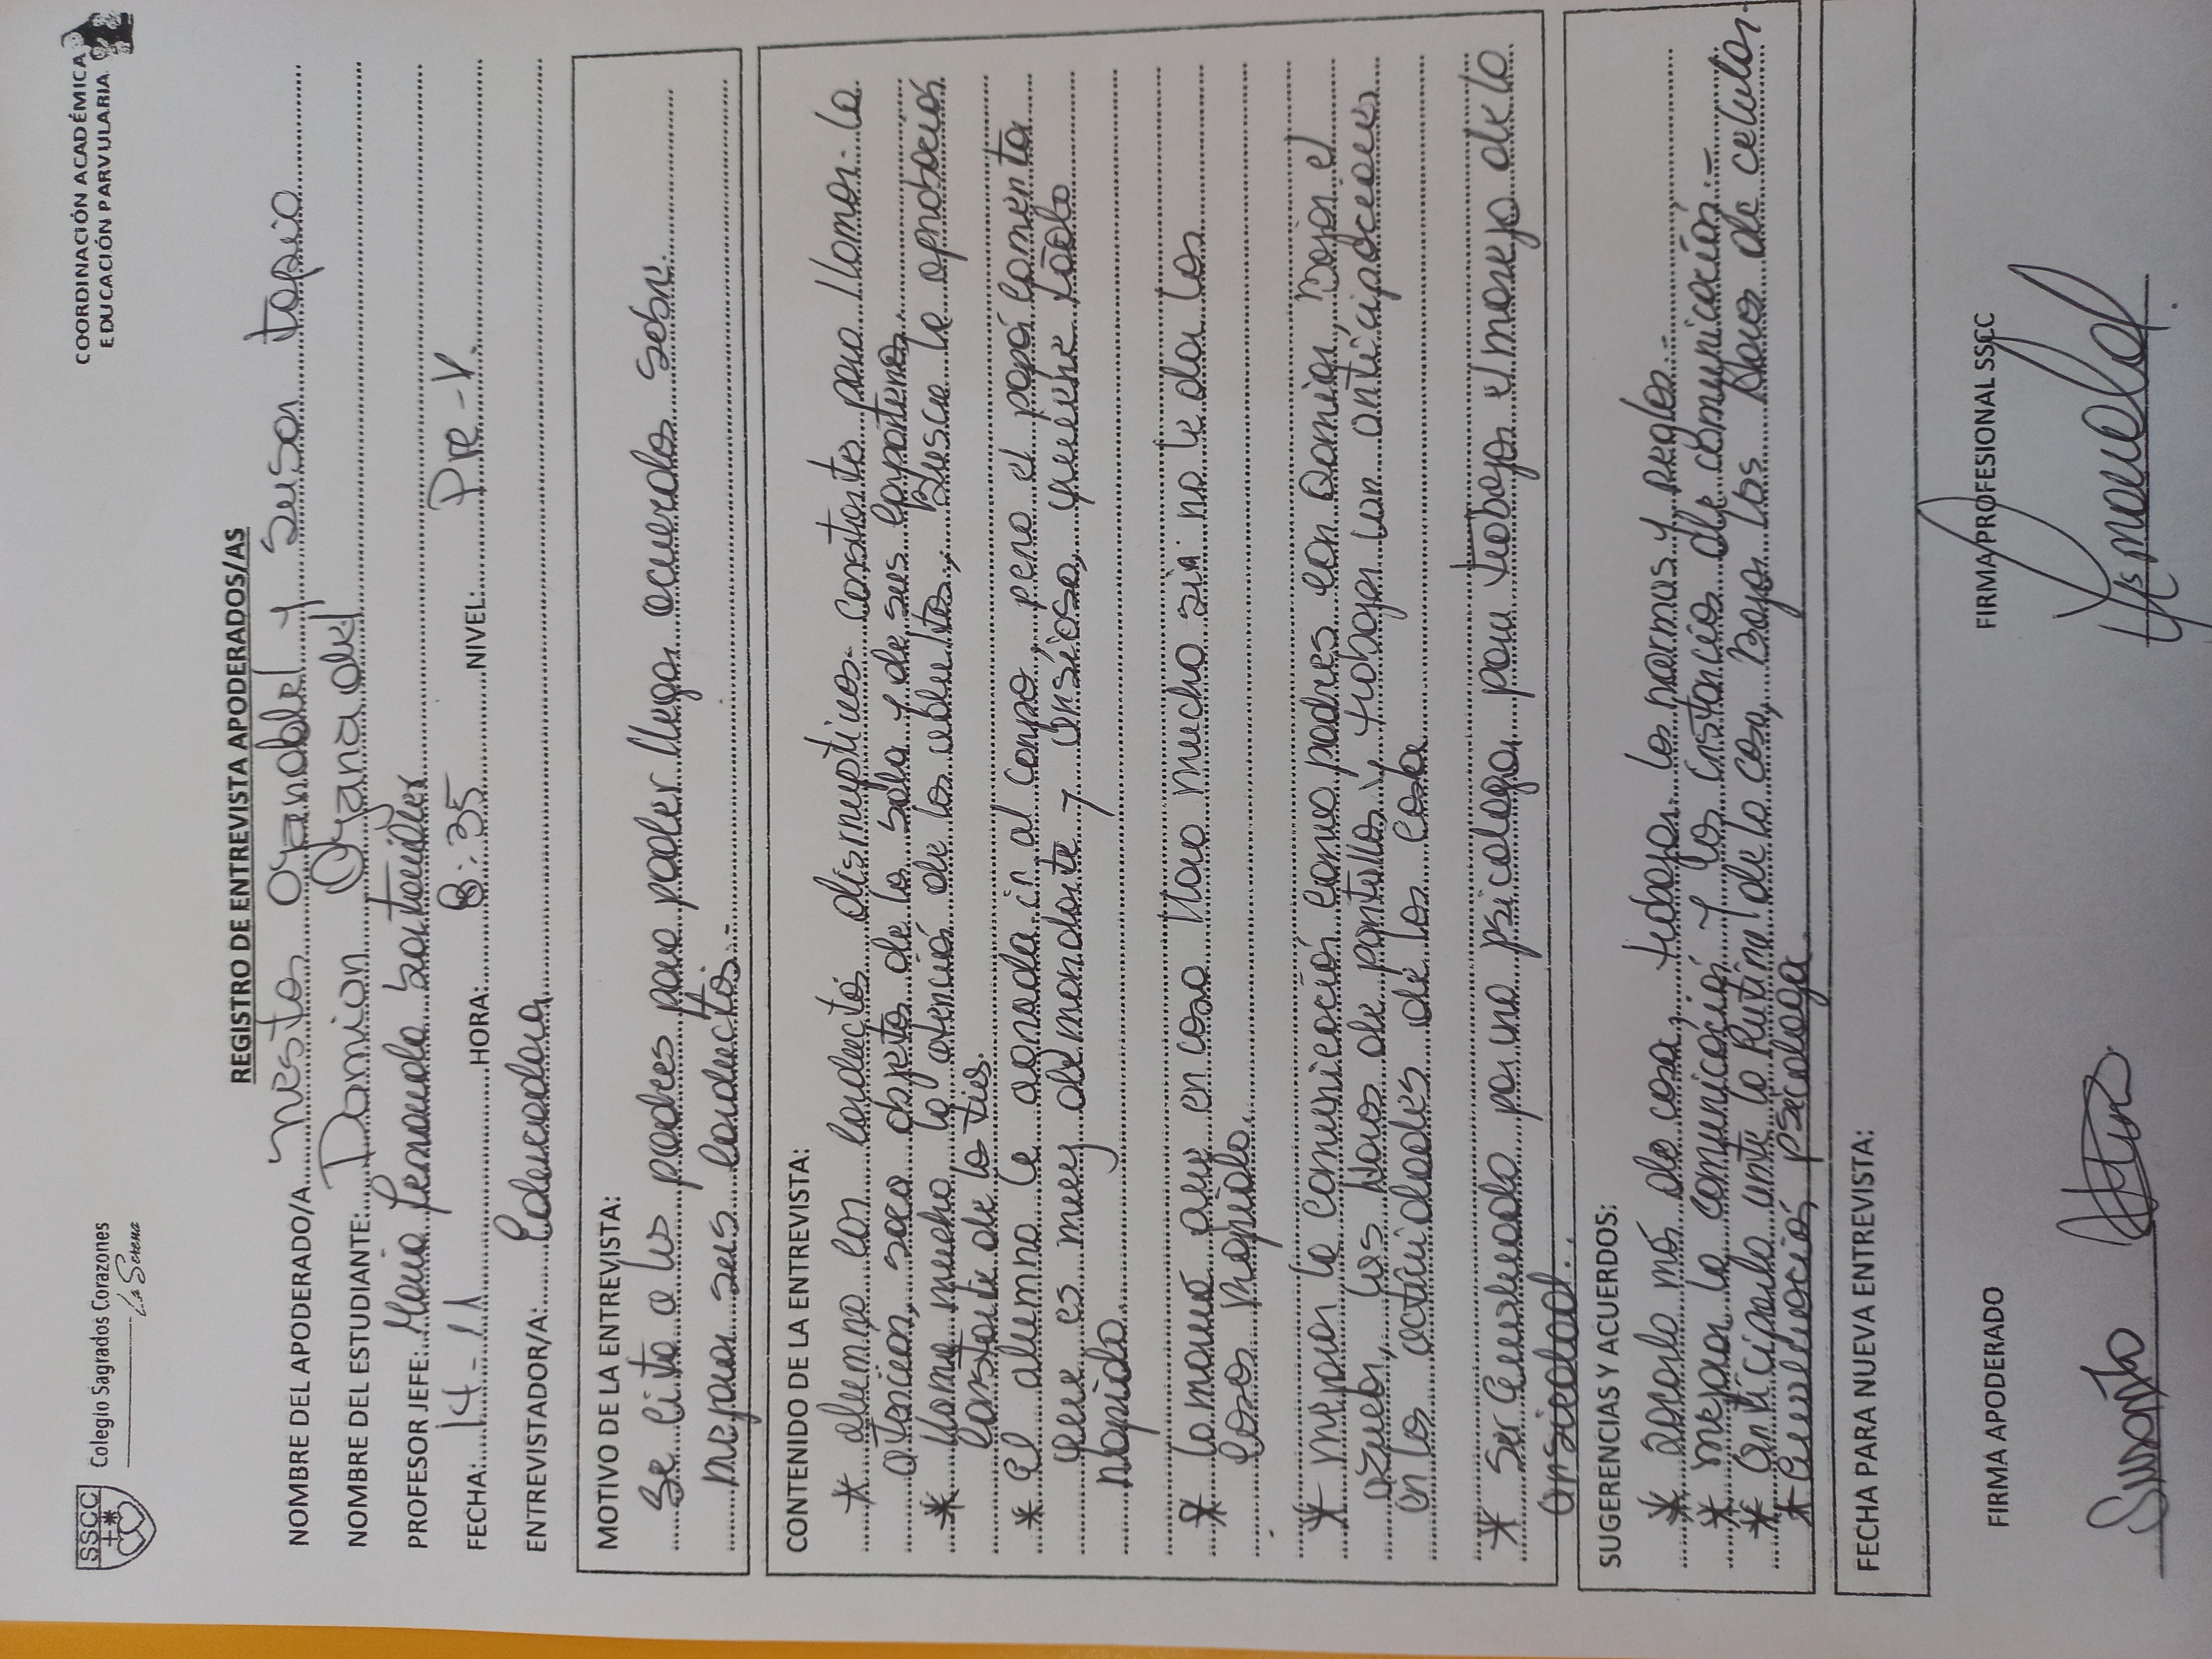 SSCC
Colegio Sagrados Corazones
La Serena
COORDINACIÓN ACADÉMICA
EDUCACIÓN PARVULARIA
REGISTRO DE ENTREVISTA APODERADOS/AS
NOMBRE DEL APODERADO/A: Nestor Oyanadel y Susan tapia
NOMBRE DEL ESTUDIANTE: Damian Oyanadel
PROFESOR JEFE: Maria fernanda Santander
FECHA: 14-11 HORA: 8:35 NIVEL: Pre-K.
ENTREVISTADOR/A: Educadora
MOTIVO DE LA ENTREVISTA:
Se cita a los padres para poder llegar acuerdos sobre
mejorar sus conductas.-
CONTENIDO DE LA ENTREVISTA:
* alumno con conductas disruptivas constantes para llamar la
atención, saca objetos de la sala y de sus compañeros
* llama mucho la atención de los adultos, Busca la aprobación
constante de las tías.
* El alumno le agrada ir al campo, pero el papá comenta
que es muy demandante y ansioso, quiere todo
rapido.
* la mama que en casa llora mucho si no le dan las
cosas rapido.
* mejorar la comunicación como padres con Damian, Bajar el
azucar, las horas de pantallas, trabajar con anticipaciones
en las actividades de las casa
* Ser evaluado por una psicologa para trabajar el manejo de la
ansiedad.
SUGERENCIAS Y ACUERDOS:
* Hacerlo más de casa, trabajar las normas y reglas.-
* mejorar la comunicación y las instancias de comunicación.-
* anticiparlo ante la Rutina de la casa, Bajar las Horas de celular.
* Evaluación psicologa
FECHA PARA NUEVA ENTREVISTA:
FIRMA APODERADO
FIRMA PROFESIONAL SSCC